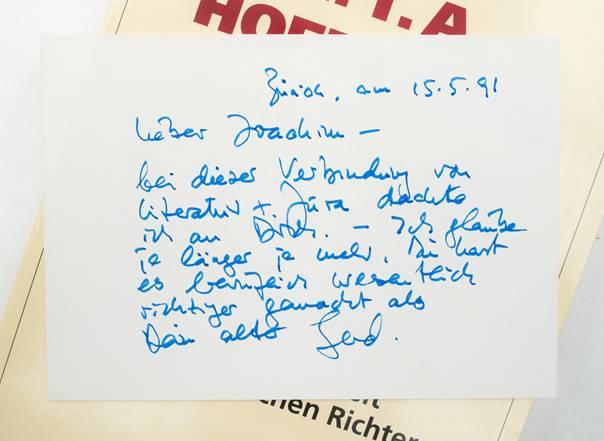 T. A
HOF
Zürich, am 15.5.91
Lieber Joachim –
bei dieser Verbindung von
Literatur + Jura dachte
ich an Dich. – Ich glaube
je länger je mehr, Du hast
es beruflich wesentlich
richtiger gemacht als
Dein alter Gerd.
it
chen Richter